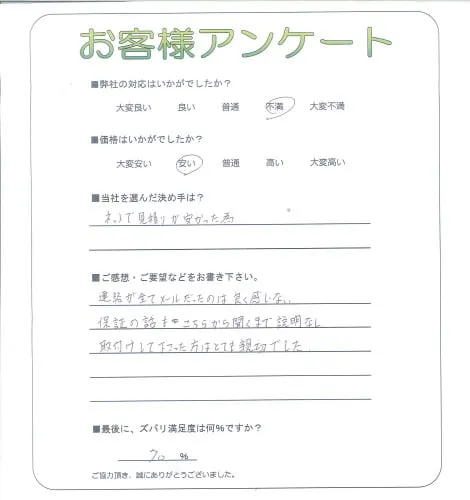 お客様アンケート
■弊社の対応はいかがでしたか？
大変良い 良い 普通 不満 大変不満
■価格はいかがでしたか？
大変安い 安い 普通 高い 大変高い
■当社を選んだ決め手は？
ネットで見積りが安かった為
■ご感想・ご要望などをお書き下さい。
連絡が全てメールだったのは良く感じない
保証の話もこちらから聞くまで説明なし
取付けして下さった方はとても親切でした
■最後に、ズバリ満足度は何％ですか？
70 ％
ご協力頂き、誠にありがとうございました。